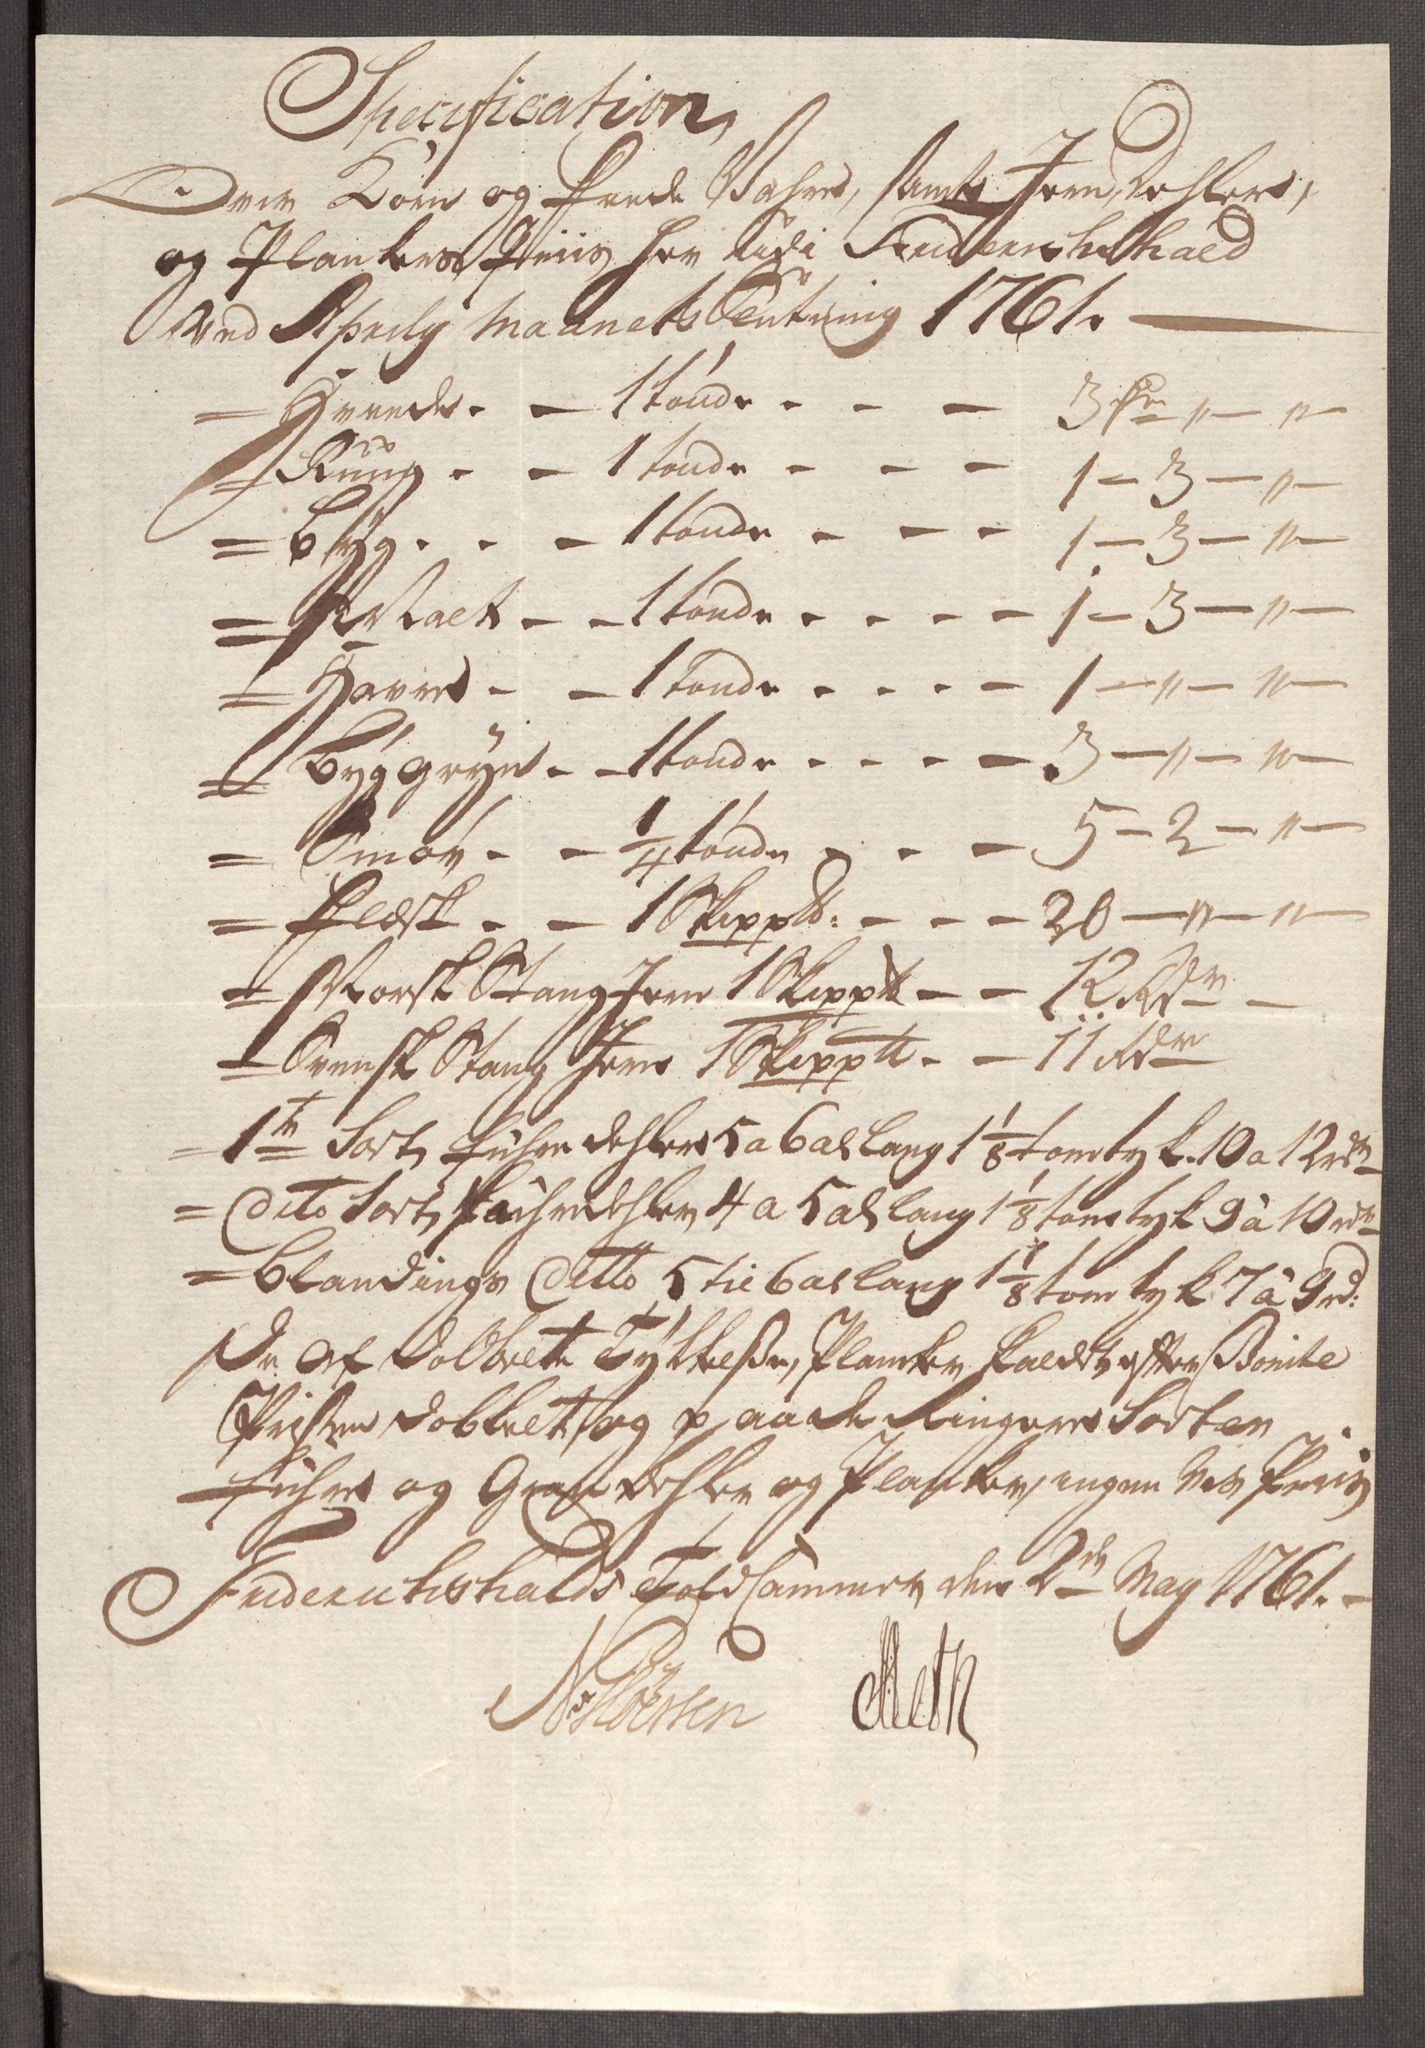 Specification
Over Korn og Feede Vahre, samt Jern, Dehler,
og Plankers Priis her udi Friderichshald
Ved Aprily Maanets Slutning 1761.
= Hvede - - 1 tønde - - - 3 Rdr " "
= Rüug - - 1 tønde - - - 1 - 3 - "
= Byg - - - 1 tønde - - - 1 - 3 - "
= Malt - - 1 tønde - - - - 1 - 3 - "
= Havre - - 1 tønde - - - - 1 - " - "
= Byggryn - - 1 tønde - - - - 3 - " - "
= Smør - - 1/4 tønde - - - 5 - 2 - "
= Flesk - - 1 Skippd: - - - 20 - " - "
= Norsk Stang Jern 1 Skippd - - 12 Rdr -
= Svensk Stang Jern 1 Skippd - - 11 Rdr
= 1te Sort, Führe dehler 5 a 6 al lang 1 1/8 tom tyk. 10 a 12 rdr
= Dito Sort, Führedehler 4 a 5 al lang 1 1/8 tom tyk 9 à 10 rdr
= Blandings Ditto 5 til 6 al lang 1 1/8 tom tyk 7 à 9 rd:
De af dobbelte Tykkelße, Planker kaldet efter
Prißen dobbelt, og paa de Ringere Sorter
Führe og Gran dehler og Planker, ingen vis Priis
Friderichshalds Told Cammer, den 2de May 1761. -